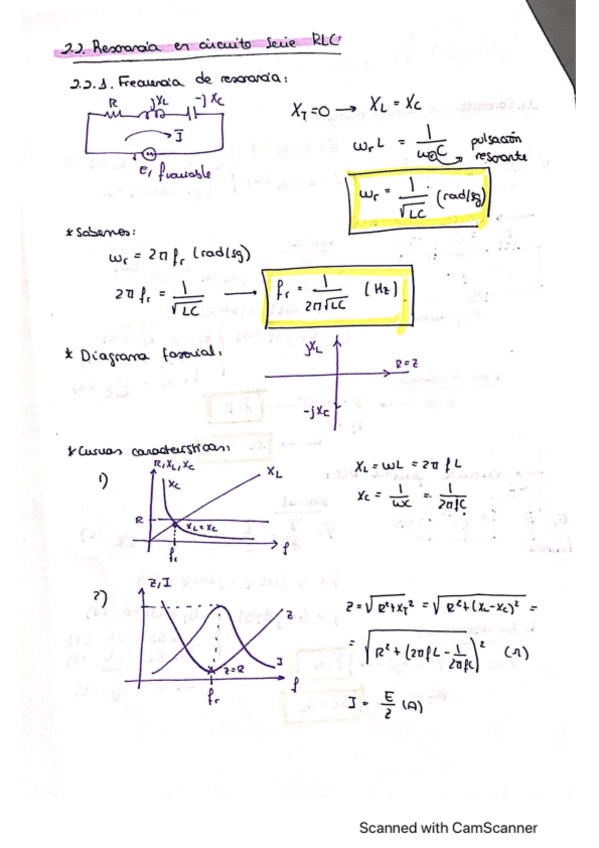 2.2. Resonancia en circuito serie RLC
2.2.1. Frecuencia de resonancia:
R jXL -jXC
I
E, f variable
XT=0 → XL = XC
ωr L = 1/ωrC pulsación resonante
ωr = 1/√LC (rad/sg)
* Sabemos:
ωr = 2π fr (rad/sg)
2π fr = 1/√LC → fr = 1/2π√LC (Hz)
* Diagrama fasorial:
jXL
R=Z
-jXC
* Curvas características:
1)
R, XL, XC
XC
XL
R
XL=XC
fr
f
XL = ωL = 2π f L
XC = 1/ωC = 1/2πfC
2)
Z, I
Z
Z=R
I
fr
f
Z = √R²+XT² = √R²+(XL-XC)² =
= √R²+(2πfL - 1/2πfC)² (Ω)
I = E/Z (A)
Scanned with CamScanner